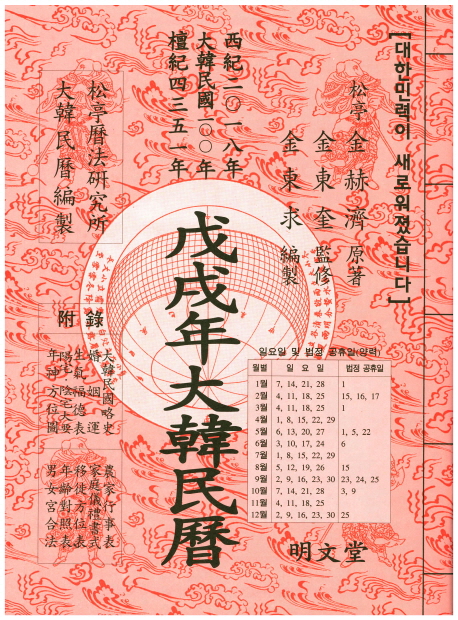 [대한민력이 새로워졌습니다]
松亭 金赫濟 原著
金東奎 監修
金東求 編製
西紀二〇一八年
大韓民國一〇〇年
檀紀四三五一年
松亭曆法硏究所
大韓民曆編製
戊戌年大韓民曆
附錄
大韓民國略史
婚姻運
生氣福德表
陽宅陰宅大要
年神方位圖
農家行事表
家庭儀禮書式
移徙方位表
年齡對照表
男女宮合法
일요일 및 법정 공휴일(양력)
월별 일요일 법정 공휴일
1월 7, 14, 21, 28 1
2월 4, 11, 18, 25 15, 16, 17
3월 4, 11, 18, 25 1
4월 1, 8, 15, 22, 29
5월 6, 13, 20, 27 1, 5, 22
6월 3, 10, 17, 24 6
7월 1, 8, 15, 22, 29
8월 5, 12, 19, 26 15
9월 2, 9, 16, 23, 30 23, 24, 25
10월 7, 14, 21, 28 3, 9
11월 4, 11, 18, 25
12월 2, 9, 16, 23, 30 25
明文堂